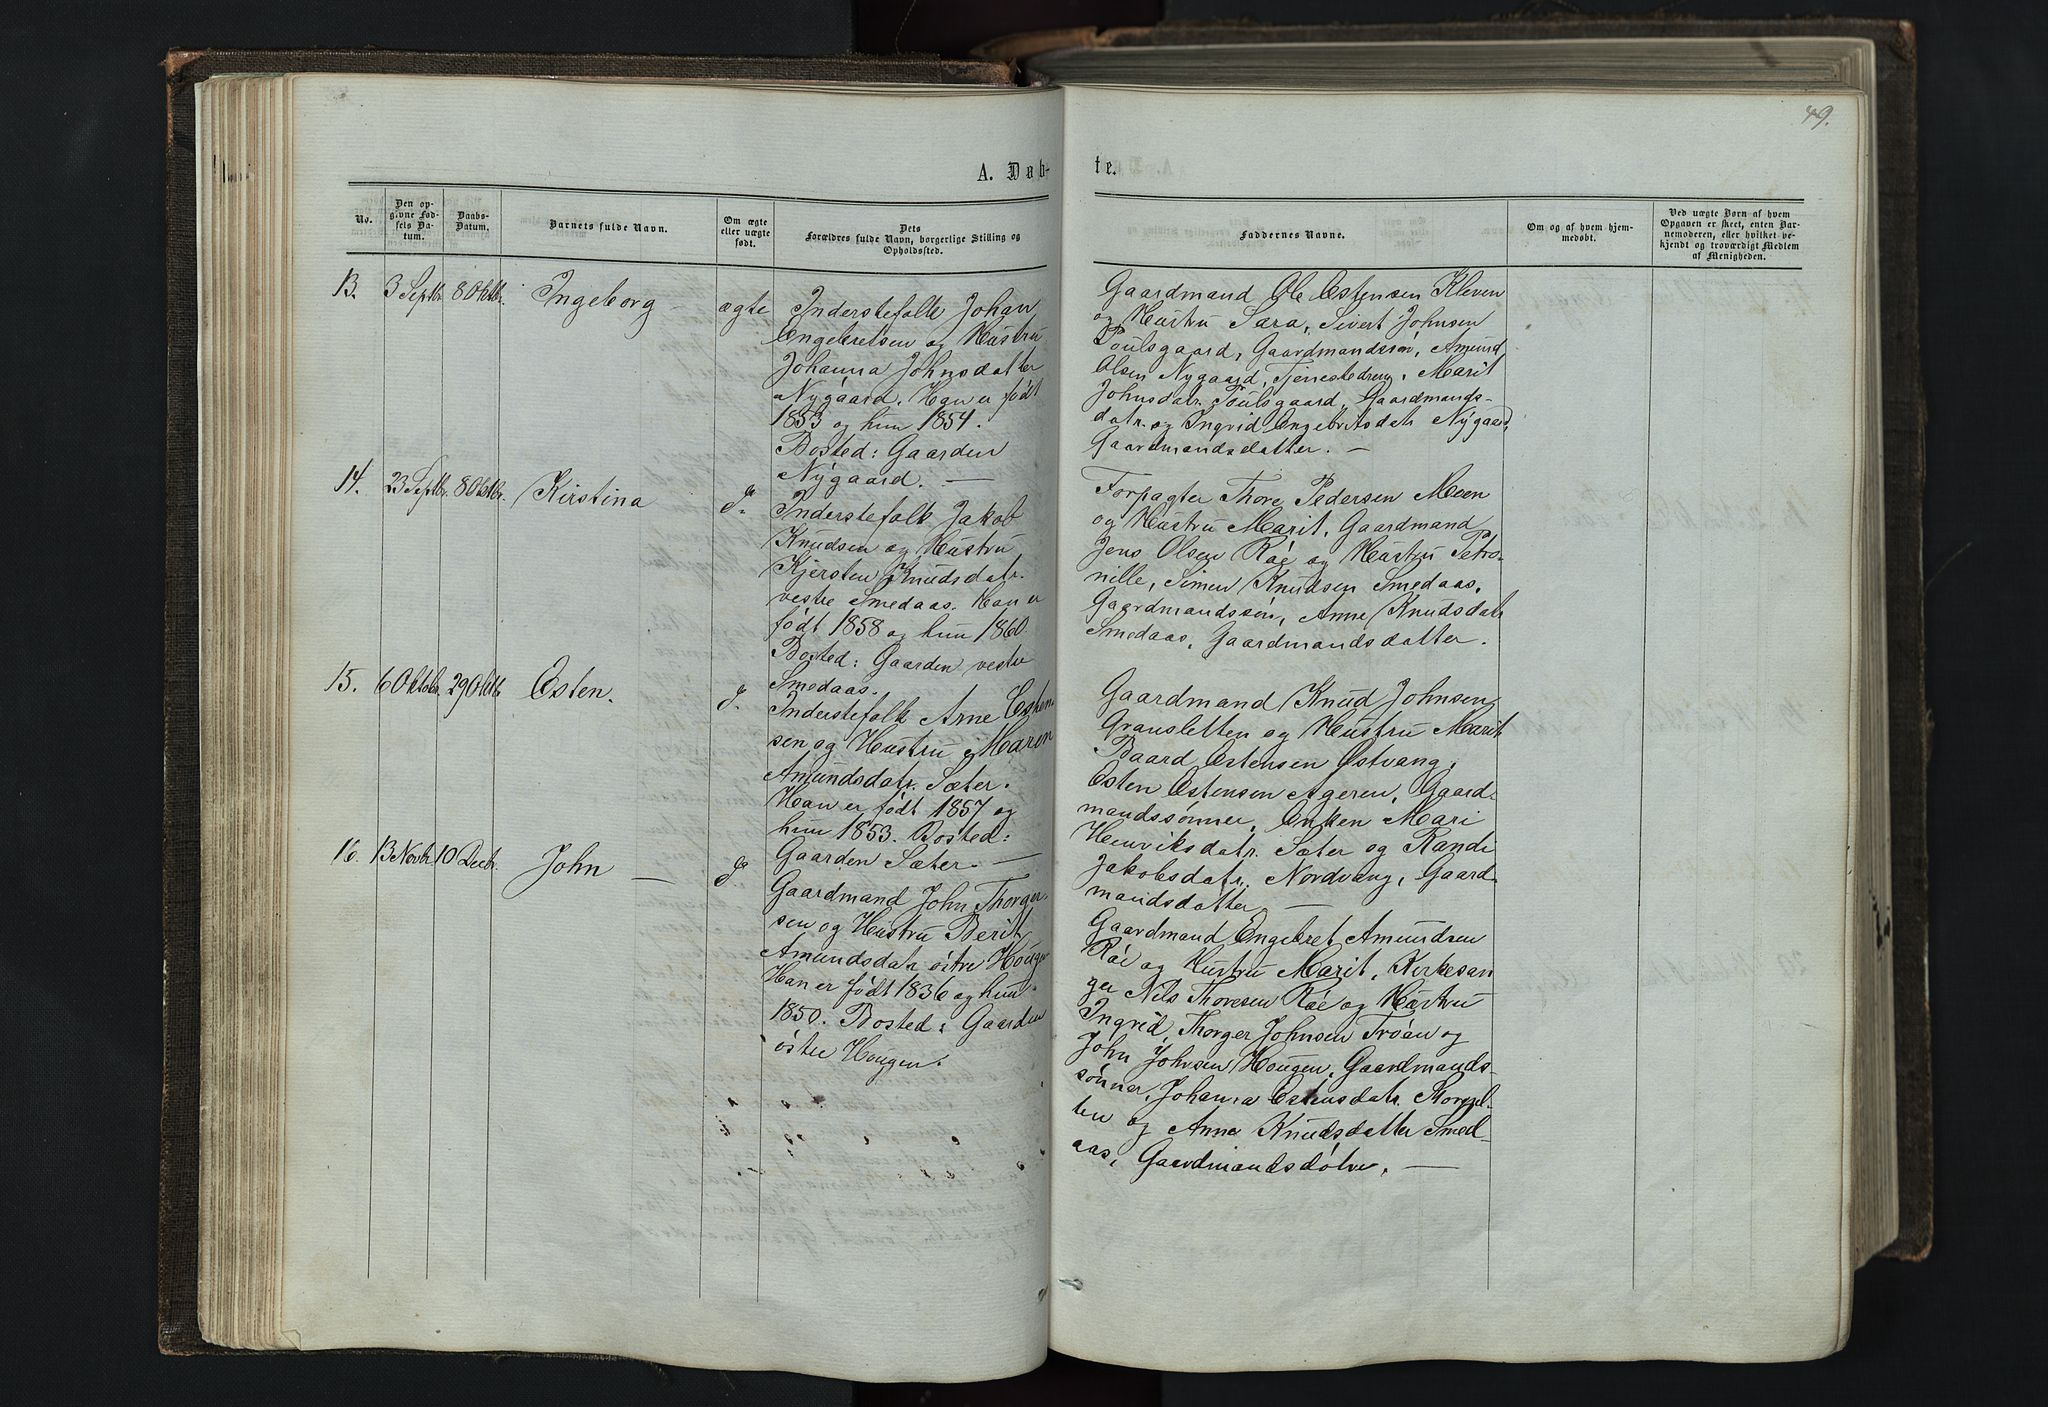 49.
A. Døb-
te.
No.
Den op-
givne Fød-
sels Da-
tum.
Daabs-
Datum.
Barnets fulde Navn.
Om ægte
eller uægte
født.
Dets
Forældres fulde Navn, borgerlige Stilling og
Opholdssted.
Faddernes Navne.
Om og af hvem hjem-
medøbt.
Ved uægte Børn af hvem
Opgaven er skeet, enten Bar-
nemoderen, eller hvilket ve-
kjendt og troværdigt Medlem
af Menigheden.
13. 3 Septbr. 8 Oktbr. Ingeborg – ægte
Inderstefolk Johan
Engebretsen og Hustru
Johanna Johnsdatter
Nygaard. Han er født
1853 og hun 1854.
Bosted: Gaarden
Nygaard. —
Gaardmand Ole Estensen Kleven
og Hustru Sara, Sivert Johnsen
Poulsgaard, Gaardmandssøn, Amund
Olsen Nygaard, Tjenestedreng, Marit
Johnsdatr. Poulsgaard, Gaardmands-
datr. og Ingrid Engebritsdatr Nygaard,
Gaardmandsdatter. —
14. 23 Septbr. 8 Oktbr. Kirstina do
Inderstefolk Jakob
Knudsen og Hustru
Kjersten Knudsdatr.
vestre Smedaas. Han er
født 1858 og hun 1860.
Bosted: Gaarden vestre
Smedaas.
Forpagter Thore Pedersen Moen
og Hustru Marit, Gaardmand
Jens Olsen Røe og Hustru Petro-
nille, Simen Knudsen Smedaas,
Gaardmandssøn, Anne Knudsdatr
Smedaas, Gaardmandsdatter.
15. 6 Oktobr. 29 Oktb. Esten. do
Inderstefolk Arne Esten-
sen og Hustru Maren
Amundsdatr. Sæter.
Han er født 1857 og
hun 1853. Bosted:
Gaarden Sæter. —
Gaardmand Knud Johnsen
Gransletten og Hustru Marit
Baard Estensen Østvang,
Esten Estensen Ageren, Gaard-
mandssønner, Enken Mari
Henriksdatr. Sæter og Randi
Jakobsdatr. Nordvang, Gaard-
mandsdatter —
16. 13 Novbr. 10 Decbr. John — do
Gaardmand John Thorger-
sen og Hustru Berit
Amundsdatr østre Hougen
Han er født 1836 og hun
1850. Bosted: Gaarden
østre Hougen.
Gaardmand Engebret Amundsen
Røe og Hustru Marit, Kirkesan-
ger Nils Thoresen Røe og Hustru
Ingrid, Thorger Johnsen Trøan og
John Johnsen Hougen, Gaardmands-
sønner, Johanna Estensdatr.
ten og Anne Knudsdatter Smed-
aas, Gaardmandsdøtre. —